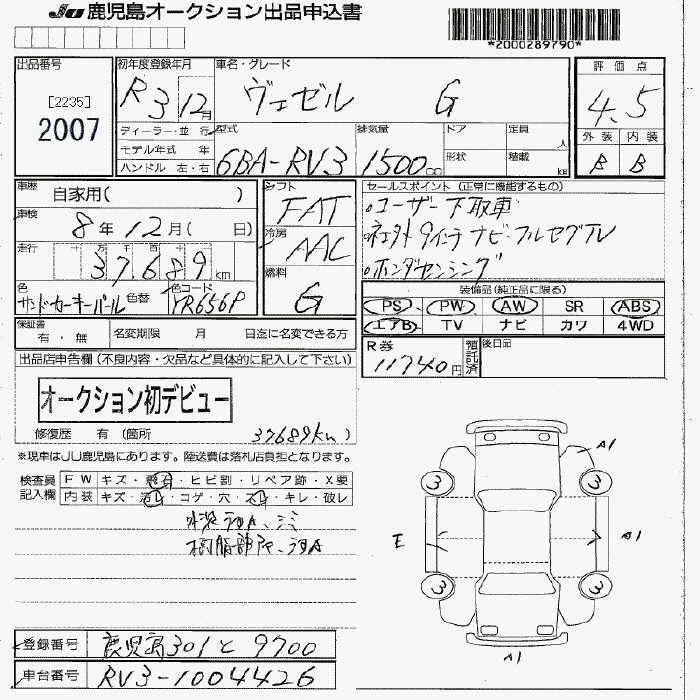 JU 鹿児島オークション出品申込書
*2000289790*
出品番号
[2235]
2007
初年度登録年月
R3 12月
車名・グレード
ヴェゼル G
評価点
4.5
外装 内装
B B
ディーラー・並行
モデル年式 年
ハンドル 左・右
型式
6BA-RV3
排気量
1500cc
ドア
形状
定員 人
積載 kg
車歴
自家用( )
車検
8年12月( 日)
走行
十 万 千 百 十
37689km
色
サンドカーキパール
色替
色コード
YR656P
シフト
FAT
冷房
AAC
燃料
G
セールスポイント(正常に機能するもの)
ユーザー下取車
ナビ・フルセグTV
ホンダセンシング
装備品(純正品に限る)
PS PW AW SR ABS
エアB TV ナビ カワ 4WD
保証書
有・無
名変期限 月 日迄に名変できる方
R券
11740円
預託済
後日品
出品店申告欄(不良内容・欠品など具体的に記入して下さい)
オークション初デビュー
修復歴 有(箇所 37689km)
※現車はJU鹿児島にあります。陸送費は落札店負担となります。
検査員記入欄
FW キズ・飛石・ヒビ割・リペア跡・X要
内装 キズ・汚れ・コゲ・穴・スレ・キレ・破レ
A1
3 3
E A1
3 3
A1
登録番号 鹿児島301と9700
車台番号 RV3-1004426